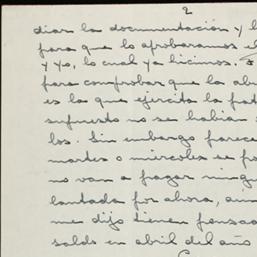 2
diar la documentación y l
para que lo aprobáramos el
y yo, lo cual ya hicimos. F
para comprobar que la abu
es la que ejercita la pat
supuesto no se habían
los. Sin embargo parece
martes o miércoles se fo
no van a pagar ningu
lantada por ahora, aun
me dijo tienen pensad
saldo en abril del año